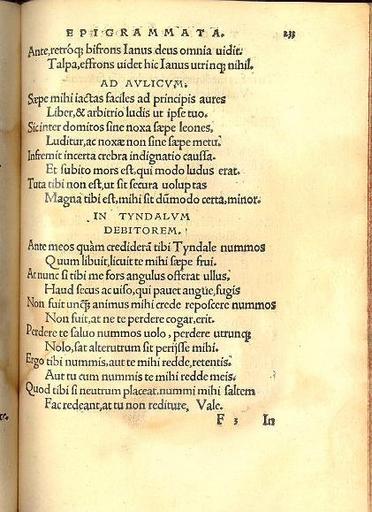 EPIGRAMMATA. 233
Ante, retróq; bifrons Ianus deus omnia uidit.
Talpa, effrons uidet hic Ianus utrinq; nihil.
AD AVLICVM.
Sæpe mihi iactas faciles ad principis aures
Liber, & arbitrio ludis ut ipse tuo.
Sic inter domitos sine noxa sæpe leones,
Luditur, ac noxæ non sine sæpe metu.
Infremit incerta crebra indignatio caussa.
Et subito mors est, qui modo ludus erat.
Tuta tibi non est, ut sit secura uoluptas
Magna tibi est, mihi sit dũmodo certa, minor.
IN TYNDALVM
DEBITOREM.
Ante meos quàm crediderã tibi Tyndale nummos
Quum libuit, licuit te mihi sæpe frui.
At nunc si tibi me fors angulus offerat ullus,
Haud secus ac uiso, qui pauet angue, fugis
Non fuit unq̃ animus mihi crede reposcere nummos
Non fuit, at ne te perdere cogar, erit.
Perdere te saluo nummos uolo, perdere utrunq;
Nolo, sat alterutrum sit perijsse mihi.
Ergo tibi nummis, aut te mihi redde, retentis.
Aut tu cum nummis te mihi redde meis.
Quod tibi si neutrum placeat, nummi mihi saltem
Fac redeant, at tu non rediture, Vale.
F 3 In